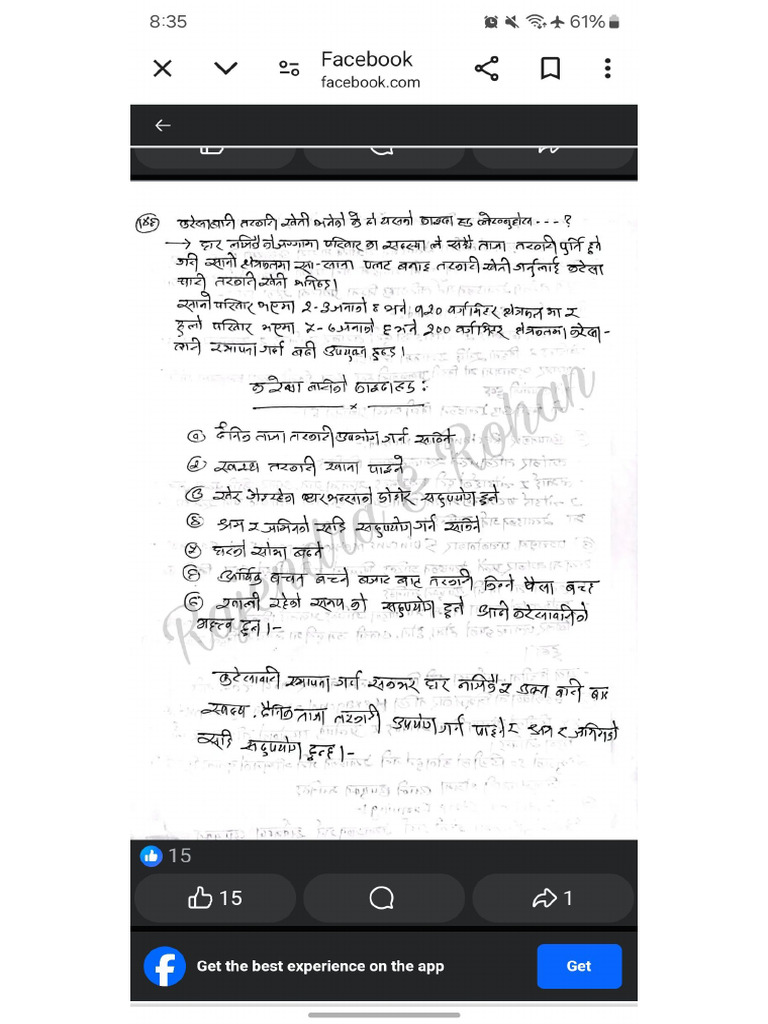 8:35
61%
Facebook
facebook.com
करेसाबारी तरकारी खेती भनेको के हो यसको फाइदा हरु लेख्नुहोस ---?
→ घर नजिकैको जग्गामा परिवार का सदस्य ले सधैं ताजा तरकारी पुर्ति हुने
गरी सानो क्षेत्रफलमा सा-साना प्लट बनाइ तरकारी खेती गर्नुलाई करेसा
बारी तरकारी खेती भनिन्छ।
सानो परिवार भएमा 2-3 जनाको भने १२० वर्गमिटर क्षेत्रफल मा र
ठुलो परिवार भएमा जनाको भने 200 वर्गमिटर क्षेत्रफलमा करेसा-
बारी स्थापना गर्दा बढी उपयुक्त हुन्छ।
करेसा बारीको फाइदाहरु :
x
दैनिक ताजा तरकारी उपभोग गर्न सकिने
स्वस्थ तरकारी खाना पाइने
खेर सदुपयोग हुने
श्रम र जमिनको सदुपयोग गर्न सकिने
घरको शोभा बढ्ने
आर्थिक बचत बजार बाट तरकारी किन्ने पैसा
खाली रहेको समय को सदुपयोग हुने करेसाबारीको
महत्व हुन।-
स्थापना गर्दा सकभर घर नजिकै र
स्वस्थ दैनिक ताजा तरकारी उपयोग गर्न पाइने र श्रम र जमिनको
सदुपयोग हुन्छ।-
Rajendra & Rohan
15
15
1
Get the best experience on the app
Get